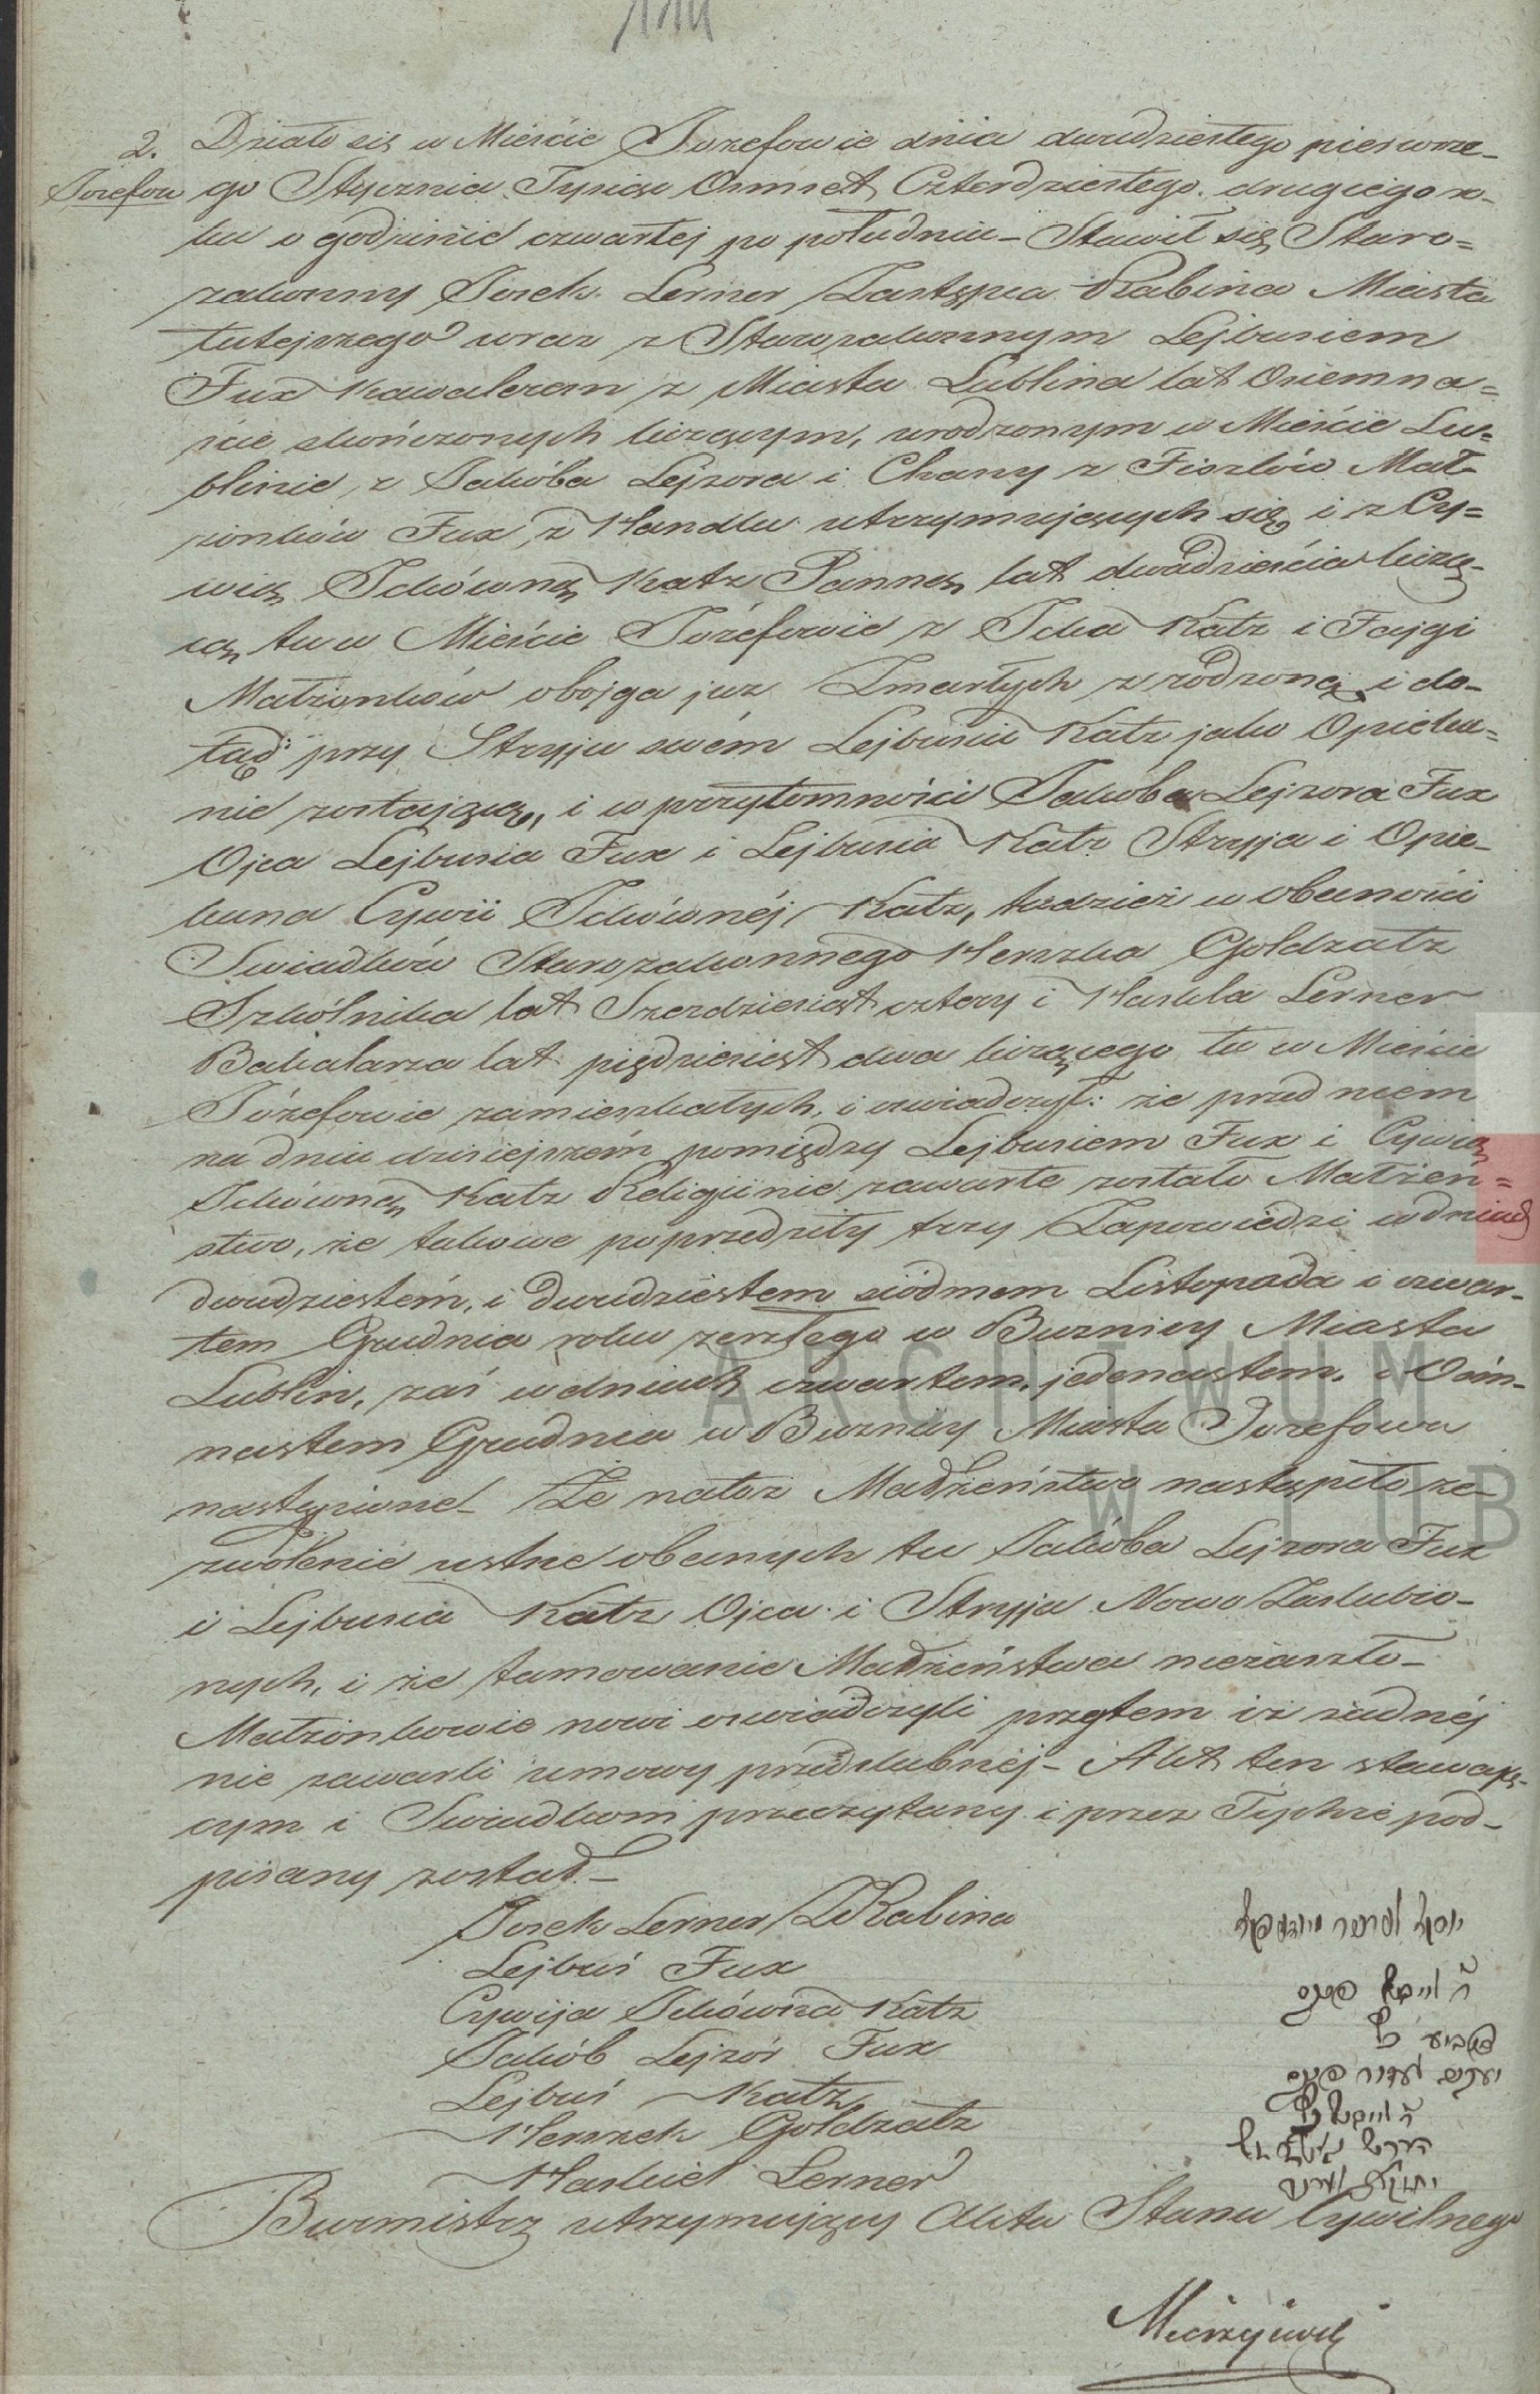 2. Działo się w Mieście Jozefowie dnia dwudziestego pierwsze-
Jozefow go Stycznia Tysiąc Ośmset Czterdziestego drugiego ro-
ku o godzinie czwartej po południu – Stawił się Staro=
zakonny Josek Lerner Zastępca Rabina Miasta
tutejszego wraz z Starozakonnym Lejbusiem
Fux Kawalerem z Miasta Lublina lat Osiemna=
ście skończonych liczącym, urodzonym w Mieście Lu=
blinie, z Jakóba Lejzora i Chany z Fiszlów Mał-
żonków Fux z Handlu utrzymujących się, i z Cy=
wią Ickówną Katz Panną lat dwadzieścia liczą-
cą, tu w Mieście Józefowie z Icka Katz i Fajgi
Małżonków obojga już Zmarłych zrodzoną, i do-
tąd przy Stryju swém Lejbusiu Katz jako Opieku=
nie zostającą, i w przytomności Jakoba Lejzora Fux
Ojca Lejbusia Fux i Lejbusia Katz Stryja i Opie-
kuna Cywii Ickównéj Katz, tudzież w obecności
Swiadków Starozakonnego Herszka Goldzatz
Szkólnika lat Szezdziesiąt cztery i Haskla Lerner
Bakałarza lat piędziesiąt dwa liczącego tu w Mieście
Józefowie zamieszkałych, i oswiadczył: że przed niem
na dniu dzisiejszém pomiędzy Lejbusiem Fux i Cywią
Ickówną Katz Religijnie zawarte zostało Małżeń=
stwo, że takowe poprzedziły trzy Zapowiedzi w dniach
dwudziestém, i dwudziestem siódmem Listopada i czwar-
tem Grudnia roku zeszłego w Buznicy Miasta
Lublin, zaś w dniach czwartem, jedenastem, i Ośm-
nastem Grudnia w Buznicy Miasta Jozefowa
nastąpione – Że na toż Małżeństwo nastąpiło ze-
zwolenie ustne obecnych tu Jakóba Lejzora Fux
i Lejbusia Katz Ojca i Stryja Nowo Zaślubio-
nych, i że tamowanie Małżeństwa niezaszło –
Małżonkowie nowi oswiadczyli przytem iż żadnéj
nie zawarli umowy przedślubnéj – Akt ten stawają-
cym i Swiadkom przeczytany i przez Tychże pod-
pisany został –
Josek Lerner Z Rabina
Lejbuś Fux
Cywija Ickówna Katz
Jakób Lejzór Fux
Lejbuś Katz
Herszek Goldzatz
Haskiel Lerner
Burmistrz utrzymujący Akta Stanu Cywilnego
ARCHIWUM
W LUB